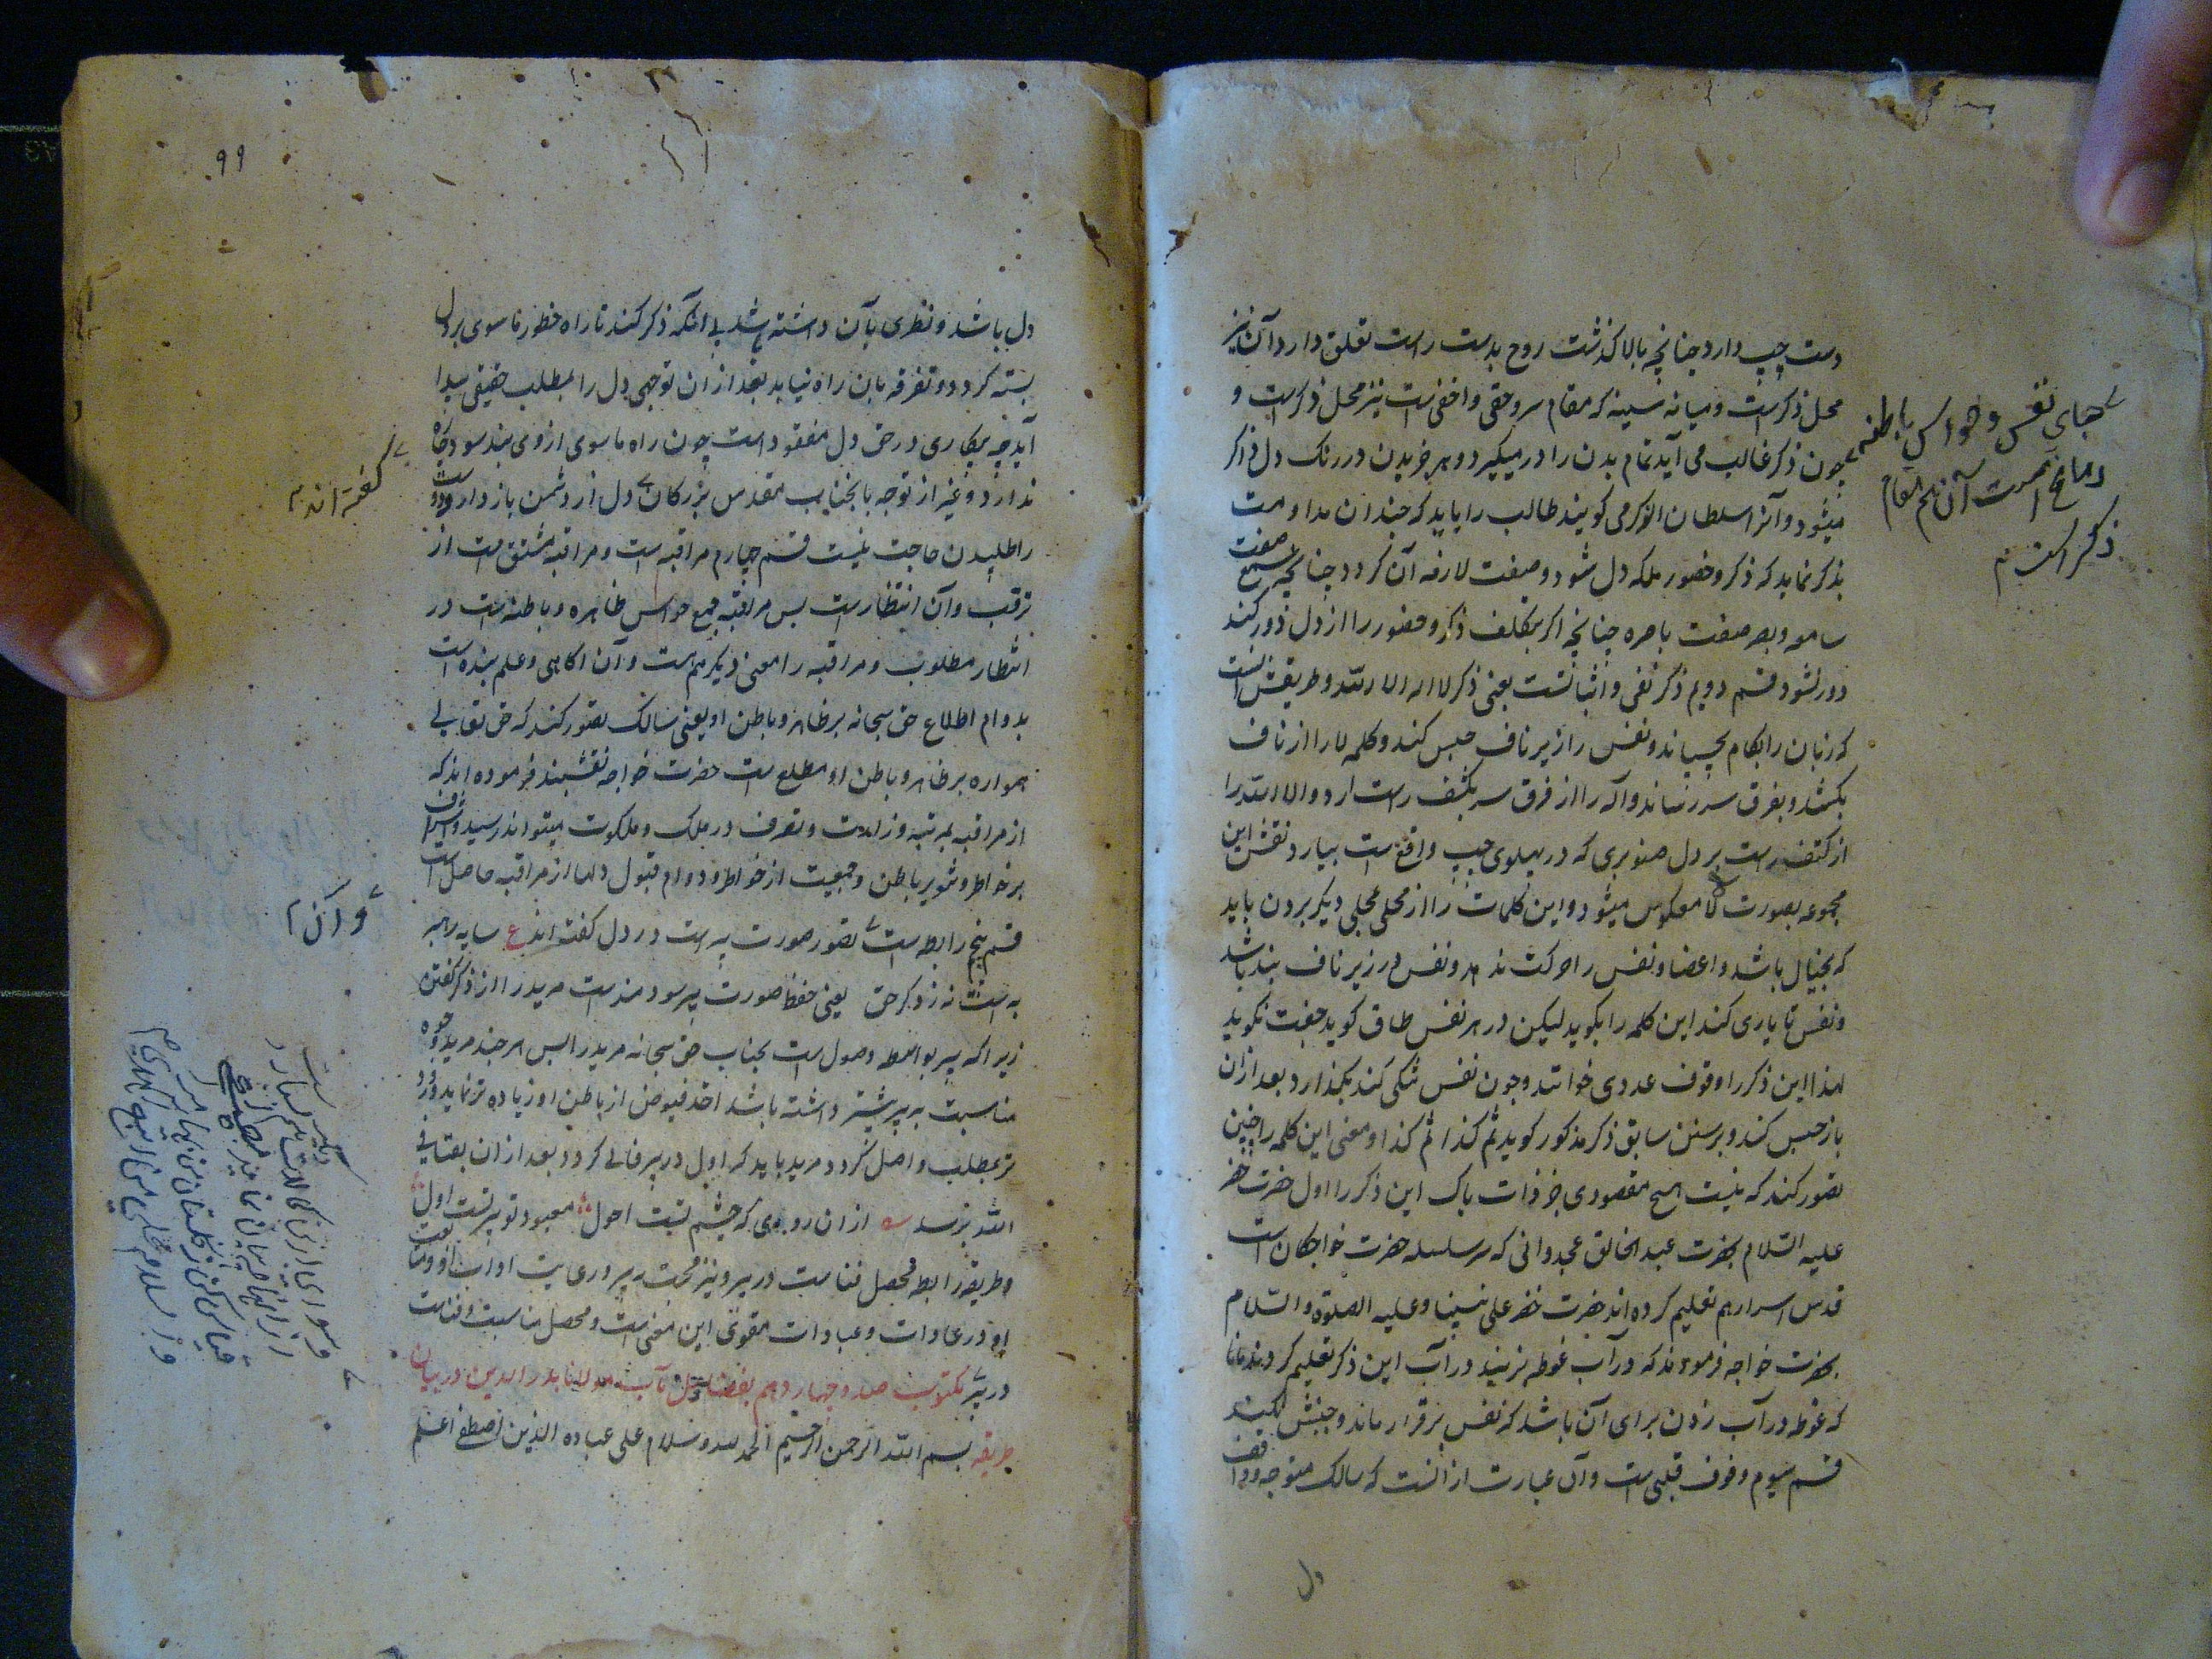 دست چپ دارد چنانچه بالا گذشت روح بدست راست تعلق دارد آن نیز
محل ذکر است و میانه سینه که مقام سر و خفی و اخفی است نیز محل ذکر است و
چون ذکر غالب می آید تمام بدن را در میگیرد و هر جزو بدن در رنگ دل ذاکر
میشود و آنرا سلطان الذکر می گویند طالب را باید که چندان مداومت
بذکر نماید که ذکر و حضور ملکه دل شود و صفت لازمه آن گردد چنانچه سمع صفت
سامعه و بصر صفت باصره چنانچه اگر بتکلف ذکر و حضور را از دل دور کند
دور نشود قسم دویم ذکر نفی و اثباتست یعنی ذکر لا اله الا الله و طریقش آنست
که زبان را بکام بچسپاند و نفس را زیر ناف حبس کند و کلمه لا را از ناف
بکشد و بفرق سر رساند و اله را از فرق سر بکتف راست ارد و الا الله را
از کتف راست بر دل صنوبری که در پهلوی چپ واقع است بیارد نقش این
مجموعه بصورت لا معکوس میشود و این کلمات را از محلی بمحلی دیگر بردن باید
که بخیال باشد و اعضا و نفس را حرکت ندهد و نفس در زیر ناف بند باشد
و نفس تا یاری کند این کلمه را بگوید لیکن در هر نفس طاق گوید جفت نگوید
لهذا این ذکر را وقوف عددی خوانند و چون نفس تنگی کند بگذارد بعد ازان
باز حبس کند و بر سنن سابق ذکر مذکور گوید ثم کذا ثم کذا و معنی این کلمه را چنین
تصور کند که نیست هیچ مقصودی جز ذات پاک این ذکر را اول حضرت خضر
علیه السلام بحضرت عبد الخالق غجدوانی که سر سلسله حضرت خواجگان است
قدس اسرارهم تعلیم کرده اند حضرت خضر علی نبینا و علیه الصلوة و السلام
بحضرت خواجه فرمودند که در آب غوطه بزنید در آب این ذکر تعلیم کردند مانا
که غوطه در آب زدن برای آن باشد که نفس برقرار ماند و جنبش نکند
قسم سیوم وقوف قلبی است و آن عبارت از انست که سالک متوجه و واقف
دل
جای نفس و حواس باطنه
دماغ است آن هم مقام
ذکر است م
۹۹
دل باشد و نظری بآن داشته باشد بی آنکه ذکر کند تا راه خطور ما سوی بر دل
بسته گردد و تفرقه بآن راه نیابد بعد ازان توجهی دل را بمطلب حقیقی پیدا
آید چه بیکاری در حق دل مفقود است چون راه ما سوی از وی بند سود چاه
ندارد و غیر از توجه بآنجناب مقدس بزرگان دل از دشمن باز دار دوست
را طلبیدن حاجت نیست قسم چهارم مراقبه است و مراقبه مشتق است از
ترقب و آن انتظار است پس مراقبه جمع حواس ظاهره و باطنه است در
انتظار مطلوب و مراقبه را معنی دیگر هم است و آن آگاهی و علم بنده است
بدوام اطلاع حق سبحانه بر ظاهر و باطن او یعنی سالک تصور کند که حق تعالی
همواره بر ظاهر و باطن او مطلع است حضرت خواجه نقشبند فرموده اند که
از مراقبه بمرتبه وزارت و تصرف در ملک و ملکوت میتواند رسید و اشراف
بر خواطر و تنویر باطن و جمعیت از خواطر و دوام قبول دلها از مراقبه حاصل است
قسم پنجم رابطه است تصور صورت پیر است در دل گفته اند ع سایه رهبر
به است از ذکر حق یعنی حفظ صورت پیر سودمند است مرید را از ذکر گفتن
زیرا که پیر بواسطه وصول است بجناب حق سبحانه مرید را پس هر چند مرید وجوه
مناسبت به پیر بیشتر داشته باشد اخذ فیوض از باطن او زیاده تر نماید و زود
تر بمطلب واصل گردد مرید باید که اول در پیر فانی گردد بعد ازان بفنا فی
الله برسد ازان روی که چشم تست احول معبود تو پیر تست اول
و طریقه رابطه محصل فناست در پیر و نیز محبت پیر و رعایت اداب او و متابعت
او در عادات و عبادات مقوی این معنی است و محصل مناسبت و فناست
در پیر مکتوب صد و چهاردهم بفضایل مآب مولانا بدر الدین در بیان
طریقه بسم الله الرحمن الرحیم الحمد لله و سلام علی عباده الذین اصطفی اعلم
گفته اند م
و آن م
و سوای ازین کمالات بسیار در
والسلام علی من اتبع الهدی م